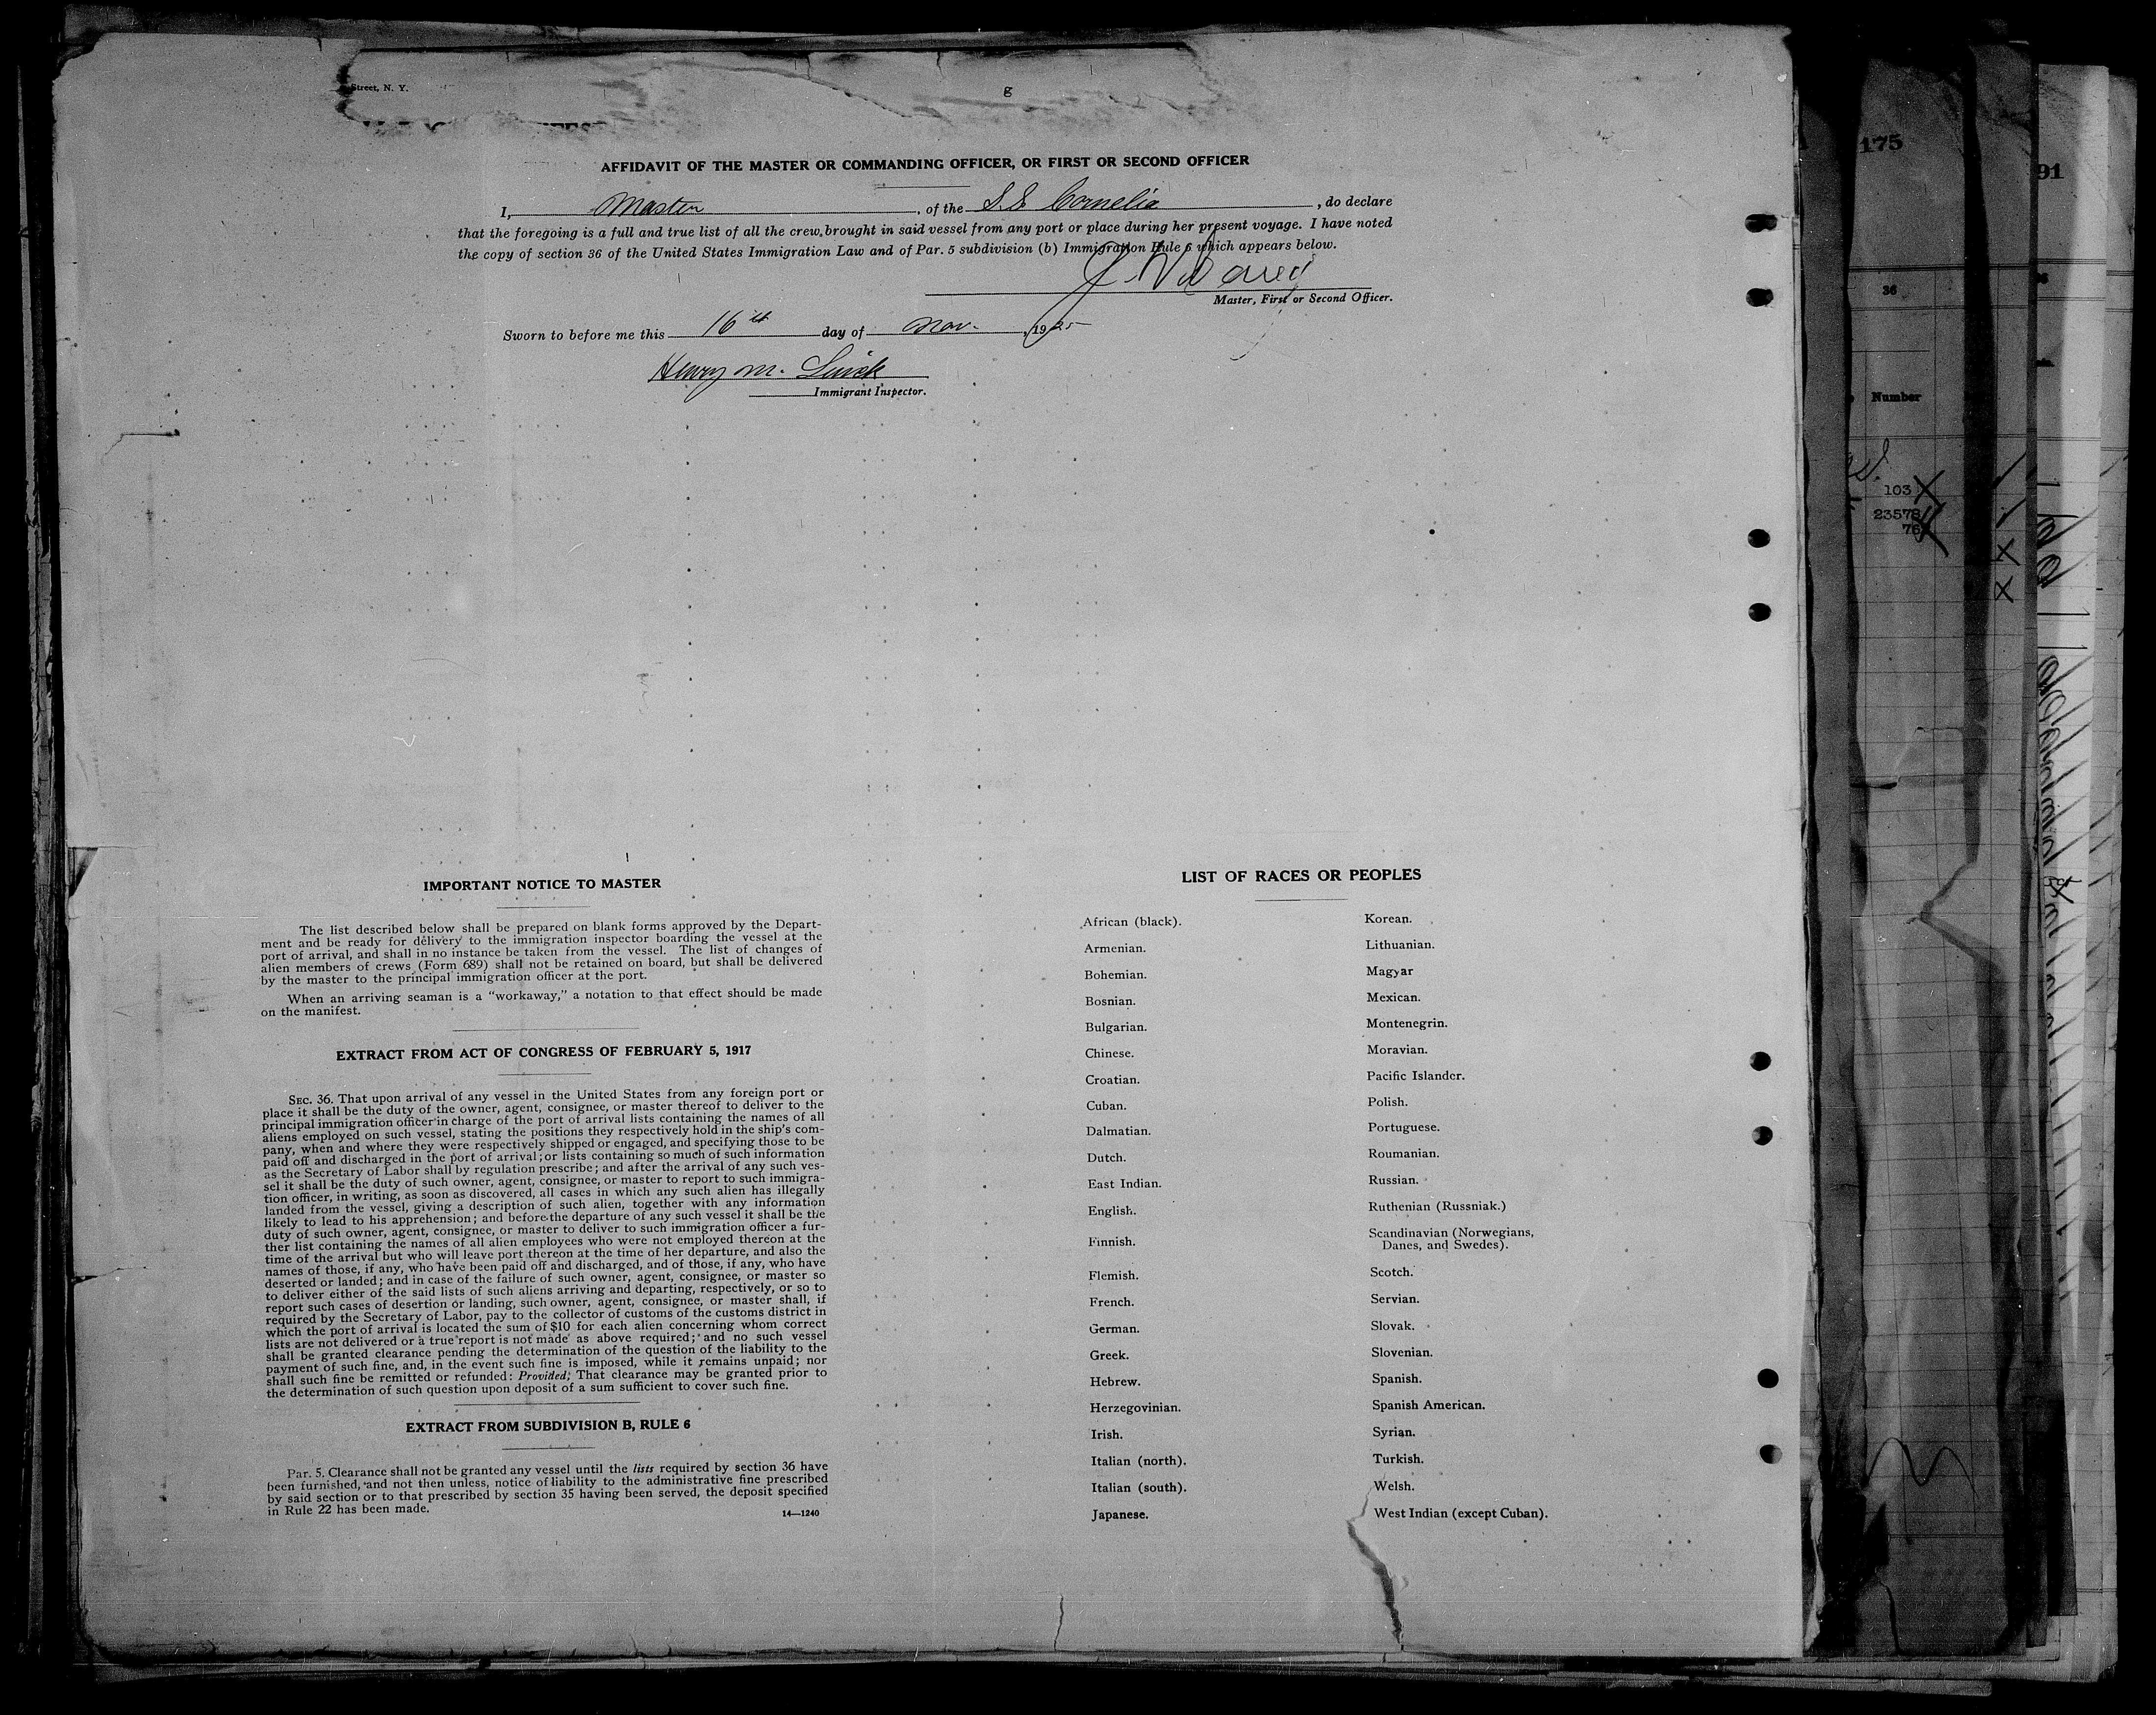 Street, N. Y.
g
AFFIDAVIT OF THE MASTER OR COMMANDING OFFICER, OR FIRST OR SECOND OFFICER
I, Master, of the S.S. Cornelia, do declare
that the foregoing is a full and true list of all the crew brought in said vessel from any port or place during her present voyage. I have noted
the copy of section 36 of the United States Immigration Law and of Par. 5 subdivision (b) Immigration Rule 6 which appears below.
J.
Master, First or Second Officer.
Sworn to before me this 16th day of Nov., 1925
Henry M.
Immigrant Inspector.
IMPORTANT NOTICE TO MASTER
The list described below shall be prepared on blank forms approved by the Depart-
ment and be ready for delivery to the immigration inspector boarding the vessel at the
port of arrival, and shall in no instance be taken from the vessel. The list of changes of
alien members of crews (Form 689) shall not be retained on board, but shall be delivered
by the master to the principal immigration officer at the port.
When an arriving seaman is a “workaway,” a notation to that effect should be made
on the manifest.
EXTRACT FROM ACT OF CONGRESS OF FEBRUARY 5, 1917
SEC. 36. That upon arrival of any vessel in the United States from any foreign port or
place it shall be the duty of the owner, agent, consignee, or master thereof to deliver to the
principal immigration officer in charge of the port of arrival lists containing the names of all
aliens employed on such vessel, stating the positions they respectively hold in the ship’s com-
pany, when and where they were respectively shipped or engaged, and specifying those to be
paid off and discharged in the port of arrival; or lists containing so much of such information
as the Secretary of Labor shall by regulation prescribe; and after the arrival of any such ves-
sel it shall be the duty of such owner, agent, consignee, or master to report to such immigra-
tion officer, in writing, as soon as discovered, all cases in which any such alien has illegally
landed from the vessel, giving a description of such alien, together with any information
likely to lead to his apprehension; and before the departure of any such vessel it shall be the
duty of such owner, agent, consignee, or master to deliver to such immigration officer a fur-
ther list containing the names of all alien employees who were not employed thereon at the
time of the arrival but who will leave port thereon at the time of her departure, and also the
names of those, if any, who have been paid off and discharged, and of those, if any, who have
deserted or landed; and in case of the failure of such owner, agent, consignee, or master so
to deliver either of the said lists of such aliens arriving and departing, respectively, or so to
report such cases of desertion or landing, such owner, agent, consignee, or master shall, if
required by the Secretary of Labor, pay to the collector of customs of the customs district in
which the port of arrival is located the sum of $10 for each alien concerning whom correct
lists are not delivered or a true report is not made as above required; and no such vessel
shall be granted clearance pending the determination of the question of the liability to the
payment of such fine, and, in the event such fine is imposed, while it remains unpaid; nor
shall such fine be remitted or refunded: Provided, That clearance may be granted prior to
the determination of such question upon deposit of a sum sufficient to cover such fine.
EXTRACT FROM SUBDIVISION B, RULE 6
Par. 5. Clearance shall not be granted any vessel until the lists required by section 36 have
been furnished, and not then unless, notice of liability to the administrative fine prescribed
by said section or to that prescribed by section 35 having been served, the deposit specified
in Rule 22 has been made.
14—1240
LIST OF RACES OR PEOPLES
African (black).
Armenian.
Bohemian.
Bosnian.
Bulgarian.
Chinese.
Croatian.
Cuban.
Dalmatian.
Dutch.
East Indian.
English.
Finnish.
Flemish.
French.
German.
Greek.
Hebrew.
Herzegovinian.
Irish.
Italian (north).
Italian (south).
Japanese.
Korean.
Lithuanian.
Magyar
Mexican.
Montenegrin.
Moravian.
Pacific Islander.
Polish.
Portuguese.
Roumanian.
Russian.
Ruthenian (Russniak.)
Scandinavian (Norwegians,
Danes, and Swedes).
Scotch.
Servian.
Slovak.
Slovenian.
Spanish.
Spanish American.
Syrian.
Turkish.
Welsh.
West Indian (except Cuban).
175
36
Number
103
23578
76
91